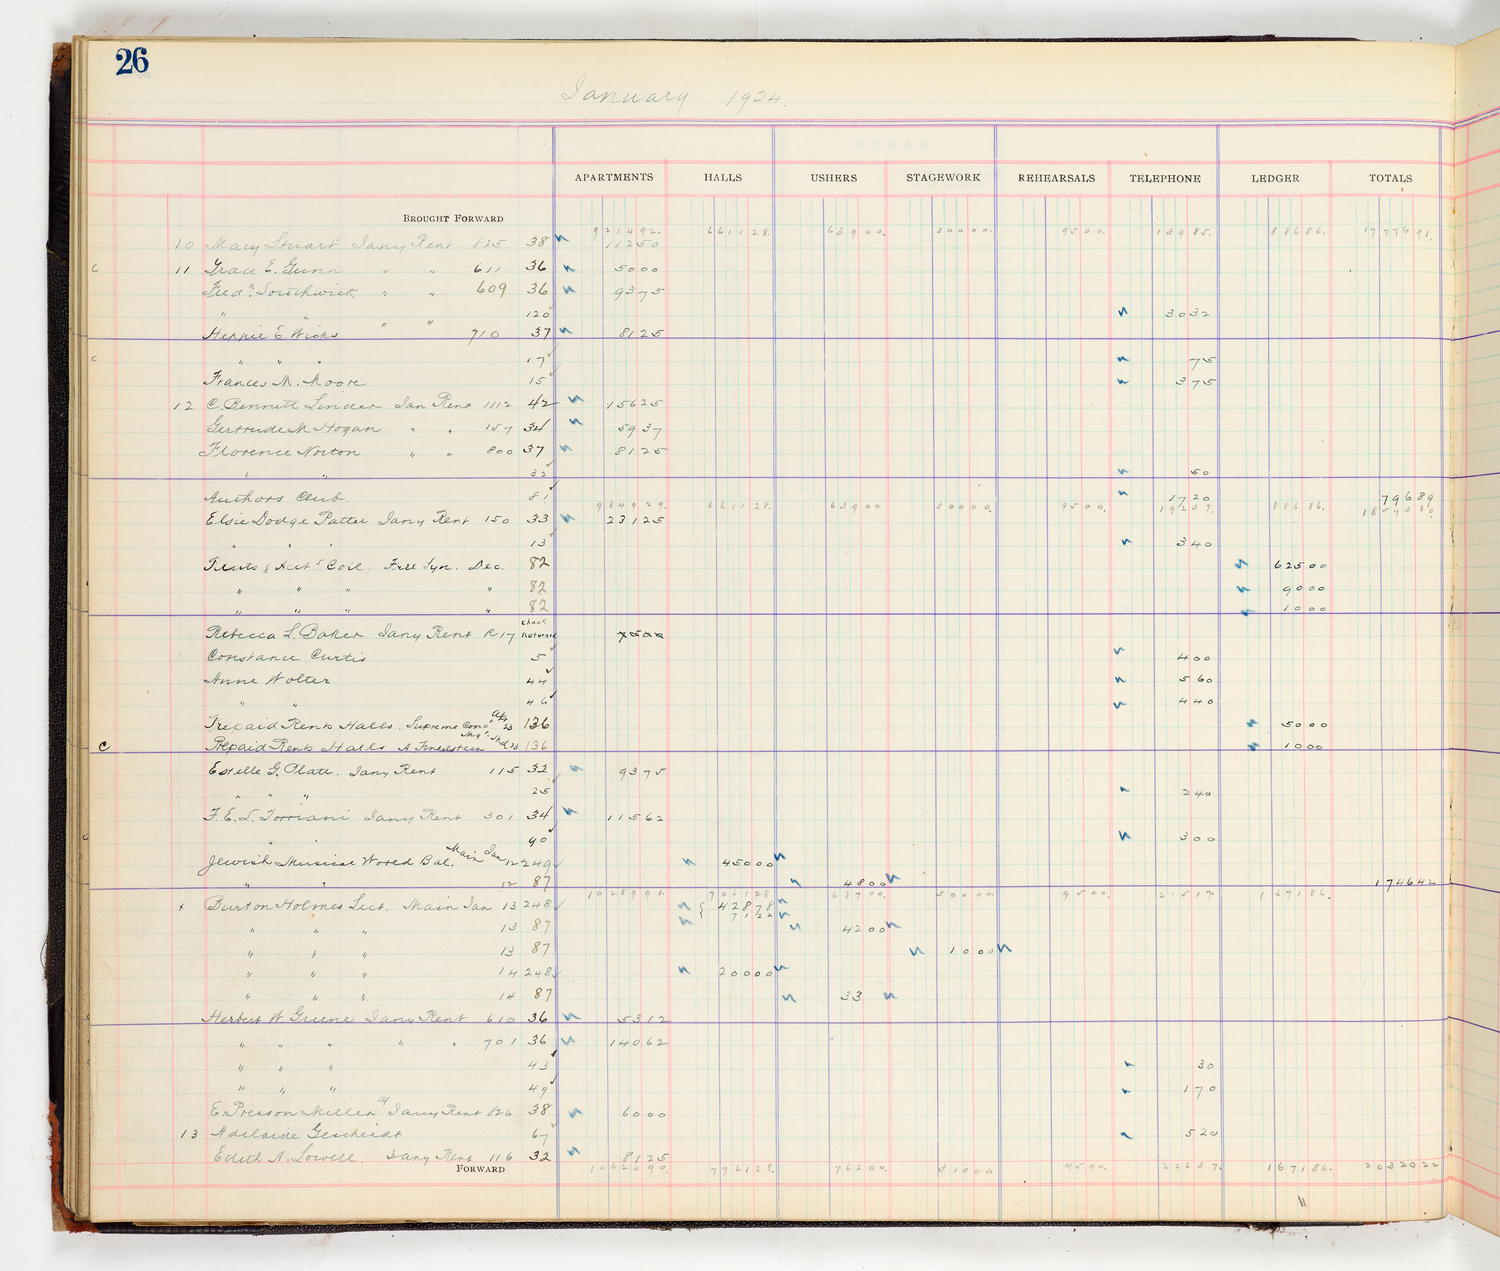 26
January 1924.
APARTMENTS HALLS USHERS STAGEWORK REHEARSALS TELEPHONE LEDGER TOTALS
BROUGHT FORWARD 921492. 661128. 63900. 50000. 9500. 13985. 88686. 1777691.
10 Mary Stuart Jany Rent 825 38 11250
c 11 Grace E. Gunn " " 611 36 5000
Fred. Southwick " " 609 36 9375
" " 120 3032
Heppie E. Wicks " " 710 37 8125
c " " " 17 75
Frances M. Moore 15 375
12 C. Bennett Linder Jan Rent 1112 42 15625
Gertrude M Hogan " " 157 34 5937
Florence Norton " " 800 37 8125
" " 32 50
Authors Club. 81 1720 79689
984929. 661128. 63900. 50000. 9500. 19237. 88686. 1857380.
Elsie Dodge Pattee Jany Rent 150 33 23125
" " " 13 340
Free Syn. Dec. 82 62500
" " " " 82 9000
" " " " 82 1000
Rebecca L. Baker Jany Rent R17 check Returned
Constance Curtis 5 400
Anne Wolter 44 560
" " 46 440
Prepaid Rents Halls. Supreme 23 136 5000
C Prepaid Rents Halls A Finkelstein 23 136 1000
Estelle G. Platt. Jany Rent 115 32 9375
" " " 25 240
F. E. L. Torriani Jany Rent 301 34 11562
" " 90 300
Jewish Musical World Bal. Main Jan 12 249 45000
" " 12 87 4800 174642
1028991. 706128. 68700. 50000. 9500. 21517. 167186.
x Burton Holmes Lect. Main Jan 13 248 { 42878
7122
" " " 13 87 4200
" " " 13 87 1000
" " " 14 248 20000
" " " 14 87 33
Herbert W. Greene Jany Rent 610 36 5312
" " " " " 701 36 14062
" " " 43 30
" " " 49 170
E. Presson Miller a/c Jany Rent 826 38 6000
13 Adelaide Gescheidt 67 520
Edith A. Lowell. Jany Rent 116 32 8125
FORWARD 1062490. 776128. 76200. 51000. 9500. 22237. 167186. 2032022